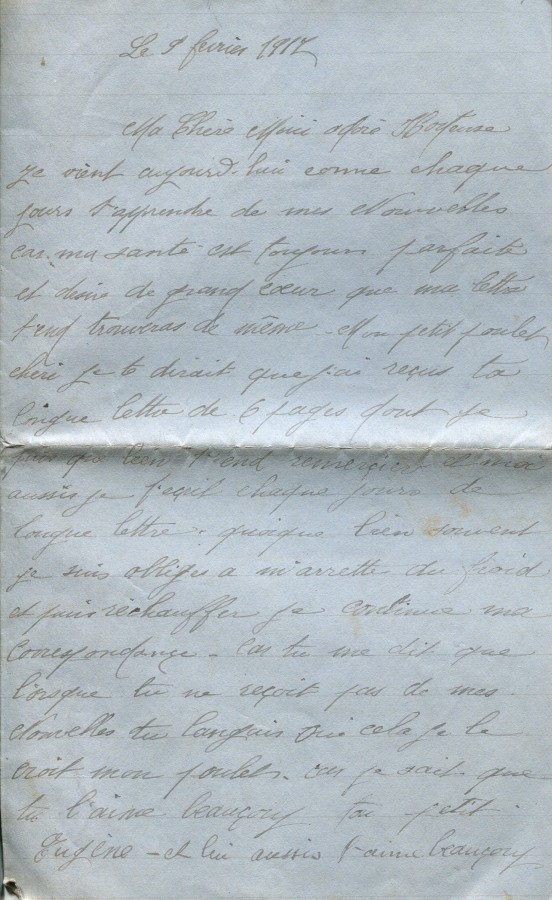 Le 9 fevrier 1917
Ma Chère Mimi adoré Hortense
Je vient aujourd-hui comme chaque
jours t'apprendre de mes Nouvelles
car ma santé est toujours parfaite
et désire de grand cœur que ma lettre
t'end trouveras de même - Mon petit poulet
chéri je te dirait que j'ai reçus ta
longue lettre de 6 pages dont je
que bien t'end remerçient et moi
aussis je t'ecrit chaque jours de
longue lettre - quoique bien souvent
je suis obligés a m'arrette du froid
et puis réchauffer je continue ma
Correspondançe - Cas tu me dit que
lorsque tu ne reçoit pas de mes
Nouvelles tu languis cela je le
croit mon poulet. cas je sait que
tu l'aime beauçouy ton petit
Eugène - et lui aussis t'aime beauçouy